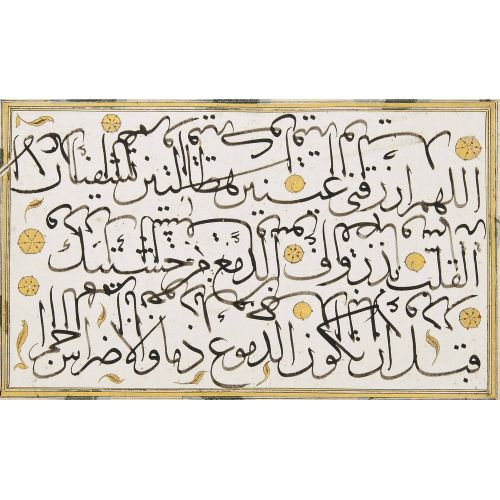 اللهم ارزقني عينين هطالتين
القلب بذروف الدمع من خشيتك
قبل أن تكون الدموع دما والأضراس جمرا